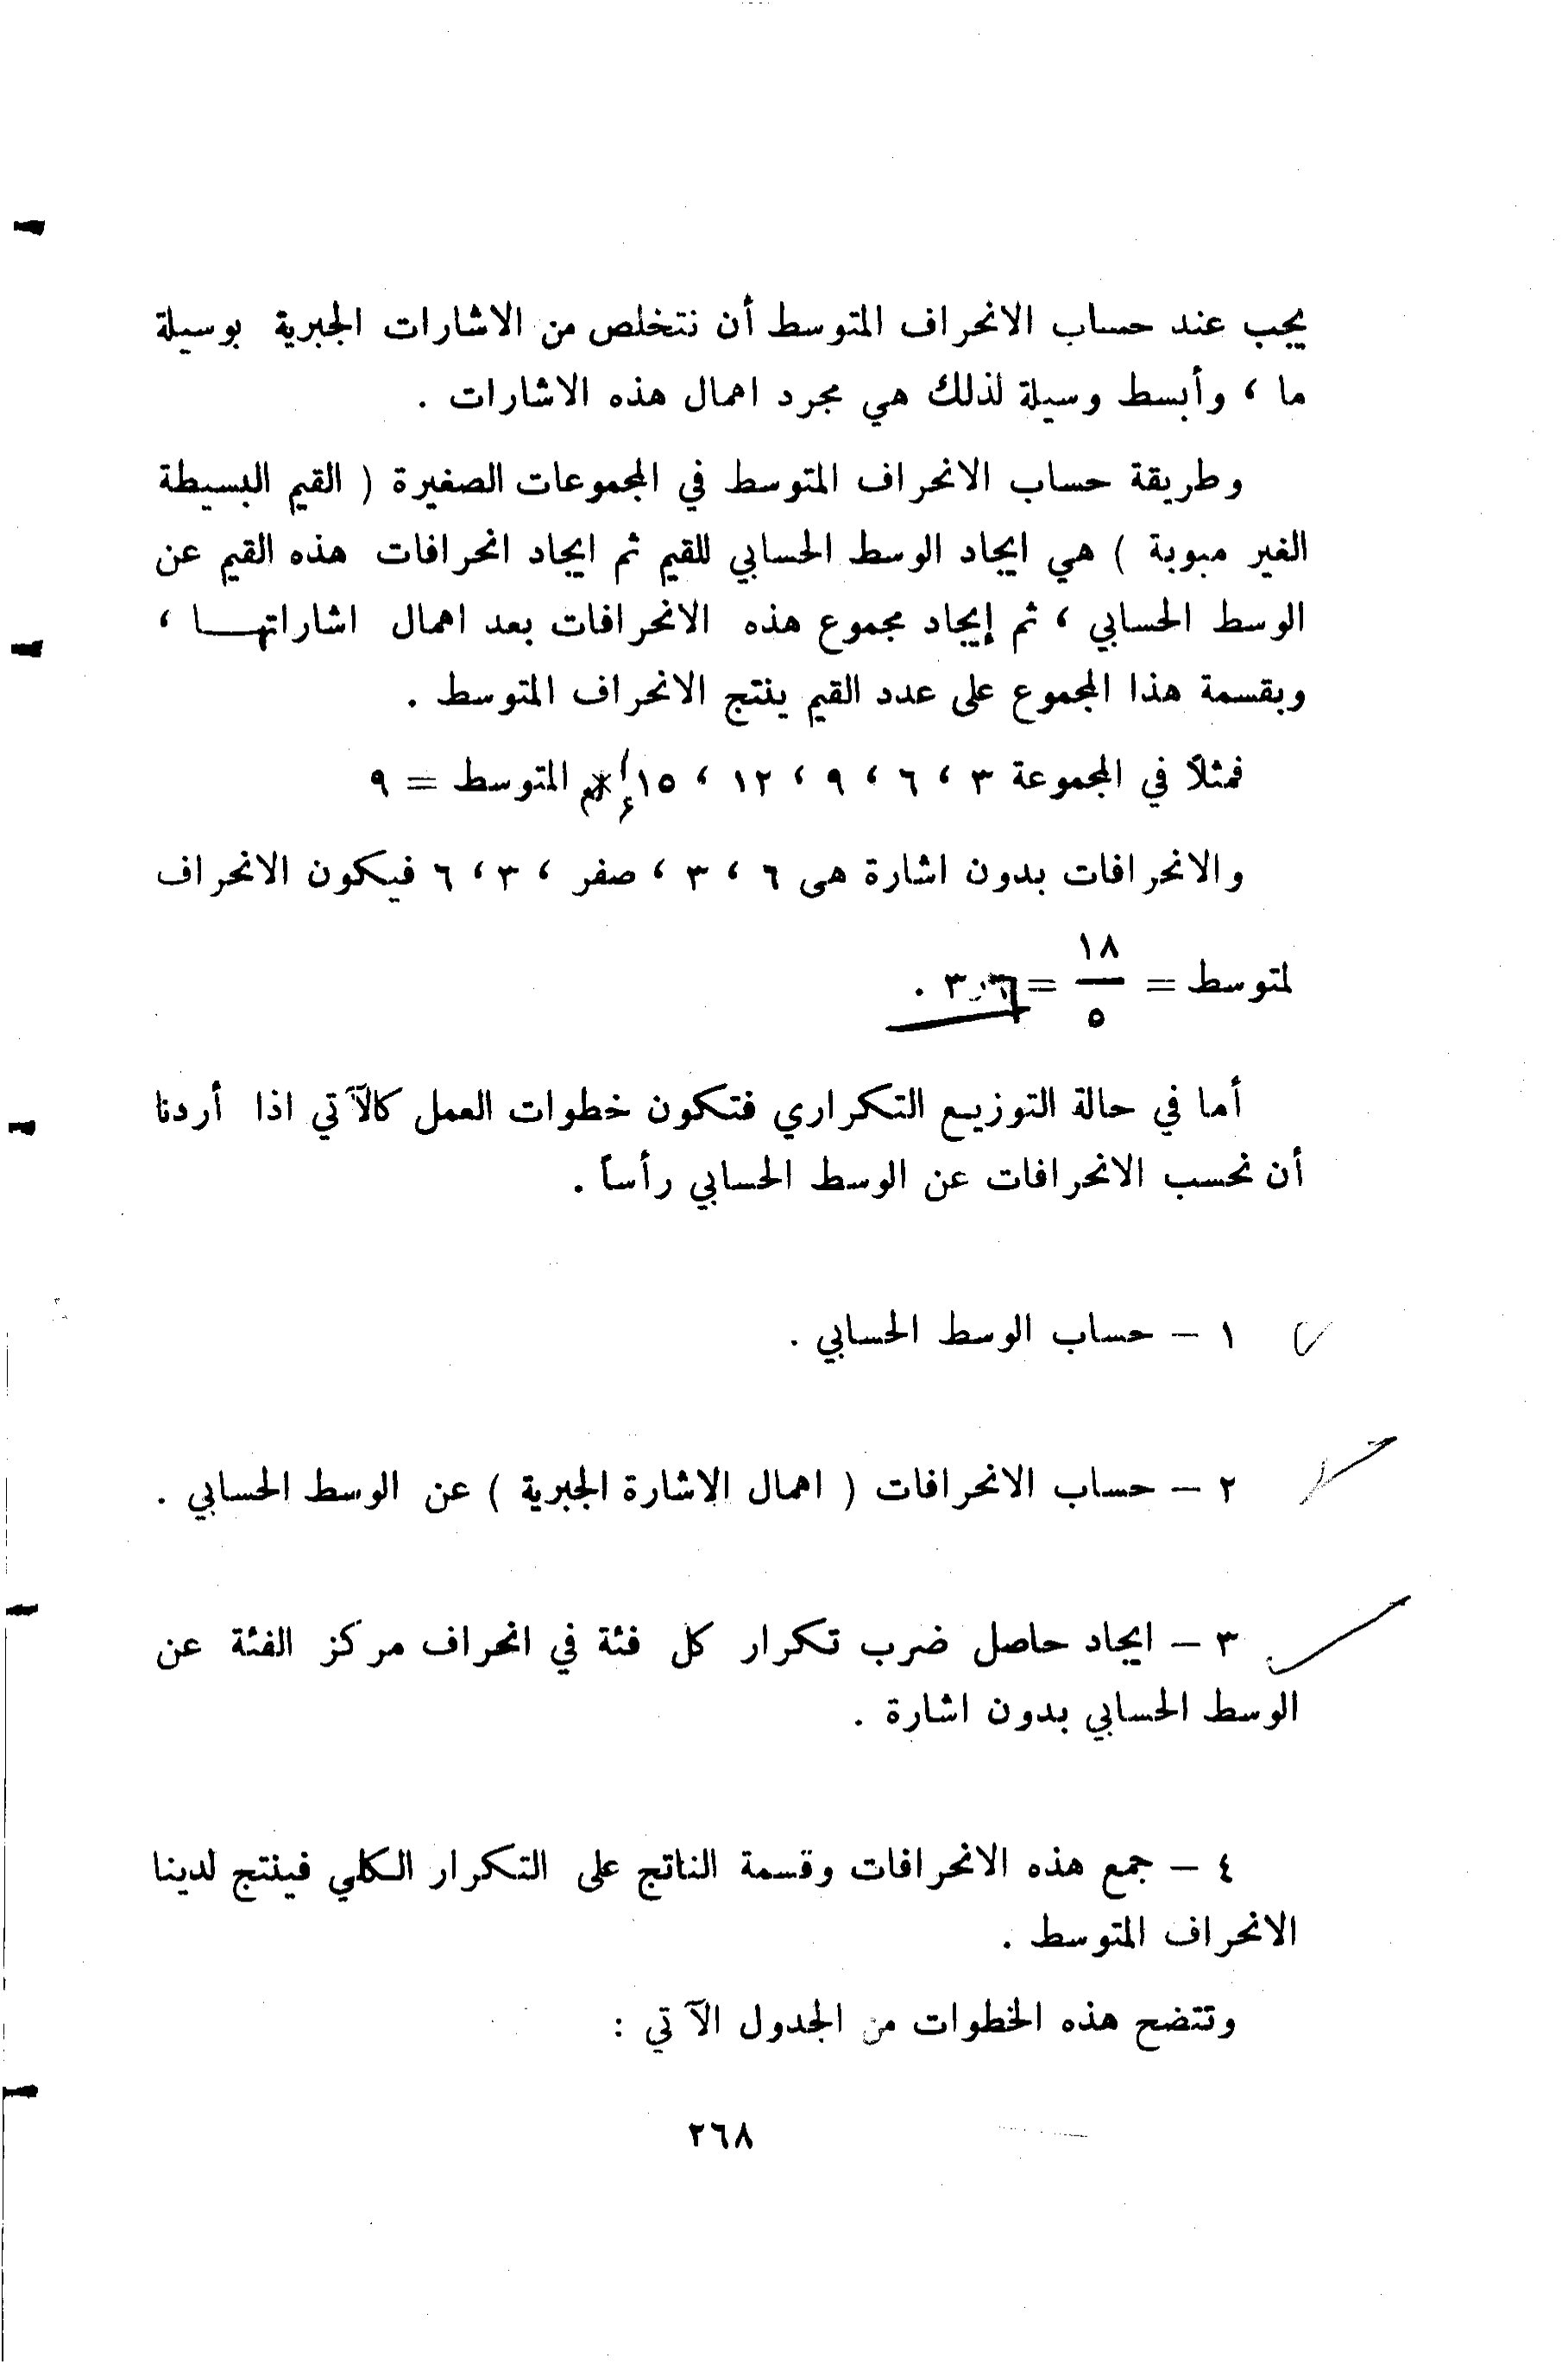 يجب عند حساب الانحراف المتوسط أن نتخلص من الاشارات الجبرية بوسيلة
ما ، وأبسط وسيلة لذلك هي مجرد اهمال هذه الاشارات .
وطريقة حساب الانحراف المتوسط في المجموعات الصغيرة ( القيم البسيطة
الغير مبوبة ) هي ايجاد الوسط الحسابي للقيم ثم ايجاد انحرافات هذه القيم عن
الوسط الحسابي ، ثم إيجاد مجموع هذه الانحرافات بعد اهمال اشاراتهـــا ،
وبقسمة هذا المجموع على عدد القيم ينتج الانحراف المتوسط .
فمثلاً في المجموعة ٣ ، ٦ ، ٩ ، ١٢ ، ١٥ المتوسط = ٩
والانحرافات بدون اشارة هى ٦ ، ٣ ، صفر ، ٣ ، ٦ فيكون الانحراف
لمتوسط = ١٨ / ٥ = ٣٫٦ .
أما في حالة التوزيع التكراري فتكون خطوات العمل كالآتي اذا أردنا
أن نحسب الانحرافات عن الوسط الحسابي رأساً .
١ – حساب الوسط الحسابي .
٢ – حساب الانحرافات ( اهمال الاشارة الجبرية ) عن الوسط الحسابي .
٣ – ايجاد حاصل ضرب تكرار كل فئة في انحراف مركز الفئة عن
الوسط الحسابي بدون اشارة .
٤ – جمع هذه الانحرافات وقسمة الناتج على التكرار الكلي فينتج لدينا
الانحراف المتوسط .
وتتضح هذه الخطوات من الجدول الآتي :
٢٦٨